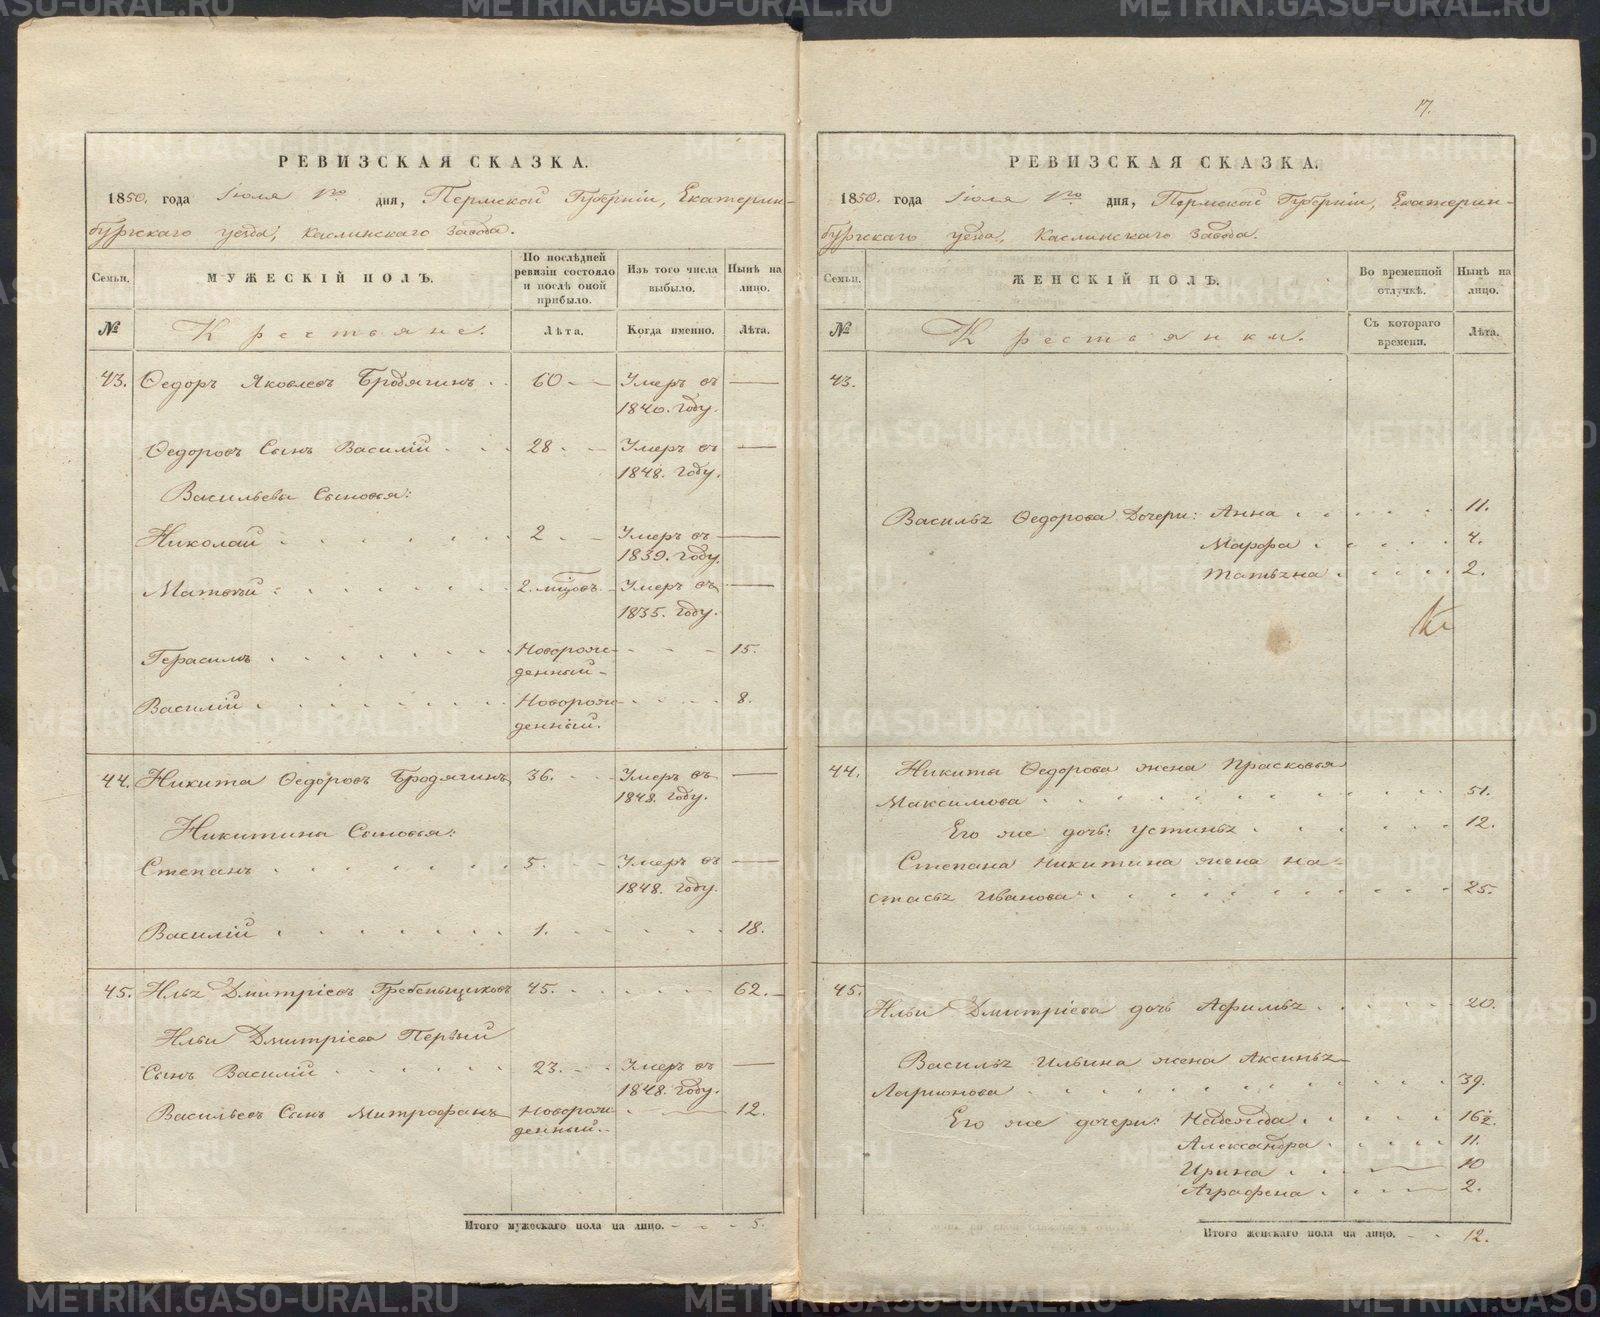 РЕВИЗСКАЯ СКАЗКА.
1850. года Іюля 1го дня, Пермской Губерніи, Екатерин-
бургскаго уезда, Каслинскаго Завода.
Семьи. МУЖЕСКІЙ ПОЛЪ. По послѣдней ревизіи состояло и послѣ оной прибыло. Изъ того числа выбыло. Нынѣ на лицо.
№ Крестьяне. Лѣта. Когда именно. Лѣта.
43. Ѳедоръ Яковлевъ Бродягинъ 60 Умеръ въ
1840. году.
Ѳедоровъ Сынъ Василій 28 Умеръ въ
1848. году.
Васильевы Сыновья:
Николай 2 Умеръ въ
1839. году.
Матвѣй 2. мѣсяцовъ Умеръ въ
1835. году.
Герасимъ Новорож- 15.
денный
Василій Новорож- 8.
денный.
44. Никита Ѳедоровъ Бродягинъ 36. Умеръ въ
1848. году.
Никитина Сыновья:
Степанъ 5. Умеръ въ
1848. году.
Василій 1. 18.
45. Илья Дмитріевъ Гребеньщиковъ 45. 62.
Ильи Дмитріева Первый
Сынъ Василій 23. Умеръ въ
1848. году.
Васильевъ Сынъ Митрофанъ Новорож- 12.
денный.
Итого мужескаго пола на лицо. 5.
17.
РЕВИЗСКАЯ СКАЗКА.
1850. года Іюля 1го дня, Пермской Губерніи, Екатерин-
бургскаго уезда, Каслинскаго Завода.
Семьи. ЖЕНСКІЙ ПОЛЪ. Во временной отлучкѣ. Нынѣ на лицо.
№ Крестьянки. Съ котораго времени. Лѣта.
43.
Василья Ѳедорова Дочери: Анна 11.
Марфа 4.
Татьяна 2.
44. Никиты Ѳедорова жена Прасковья
Максимова 51.
Его же дочь: Устинья 12.
Степана Никитина жена На-
стасья Иванова 25.
45.
Ильи Дмитріева дочь Афимья 20.
Василья Ильина жена Аксинья
Ларионова 39.
Его же дочери: Надежда 16½.
Александра 11.
Ирина 10
Аграфена 2.
Итого женскаго пола на лицо. 12.
METRIKI.GASO-URAL.RU